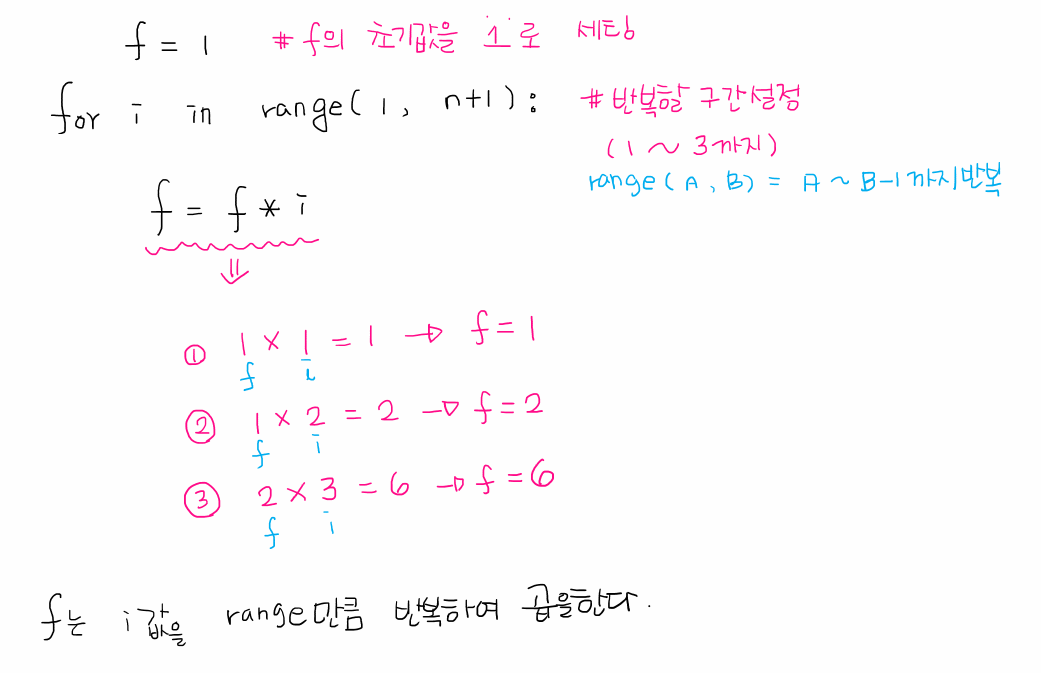 f = 1 # f의 초기값을 1로 세팅
for i in range(1, n+1): # 반복할 구간설정
(1 ~ 3까지)
range(A, B) = A ~ B-1까지반복
f = f * i
⇓
① 1 × 1 = 1 → f = 1
f i
② 1 × 2 = 2 → f = 2
f i
③ 2 × 3 = 6 → f = 6
f i
f는 i값을 range만큼 반복하여 곱을한다.